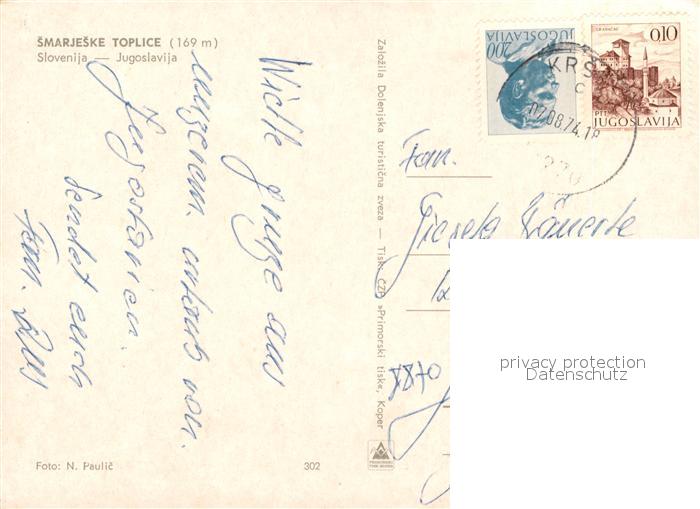 ŠMARJEŠKE TOPLICE (169 m)
Slovenija — Jugoslavija
Viele Grüße aus
unserem Urlaub von
Jugoslavien.
sendet euch
Fam.
Foto: N. Paulič
302
Založila Dolenjska turistična zveza — Tisk: ČZP »Primorski tisk«, Koper
JUGOSLAVIJA
2.00
GRADAČAC
0,10
PTT
JUGOSLAVIJA
KRŠ
07.08.74.18
Fam.
8870
privacy protection
Datenschutz